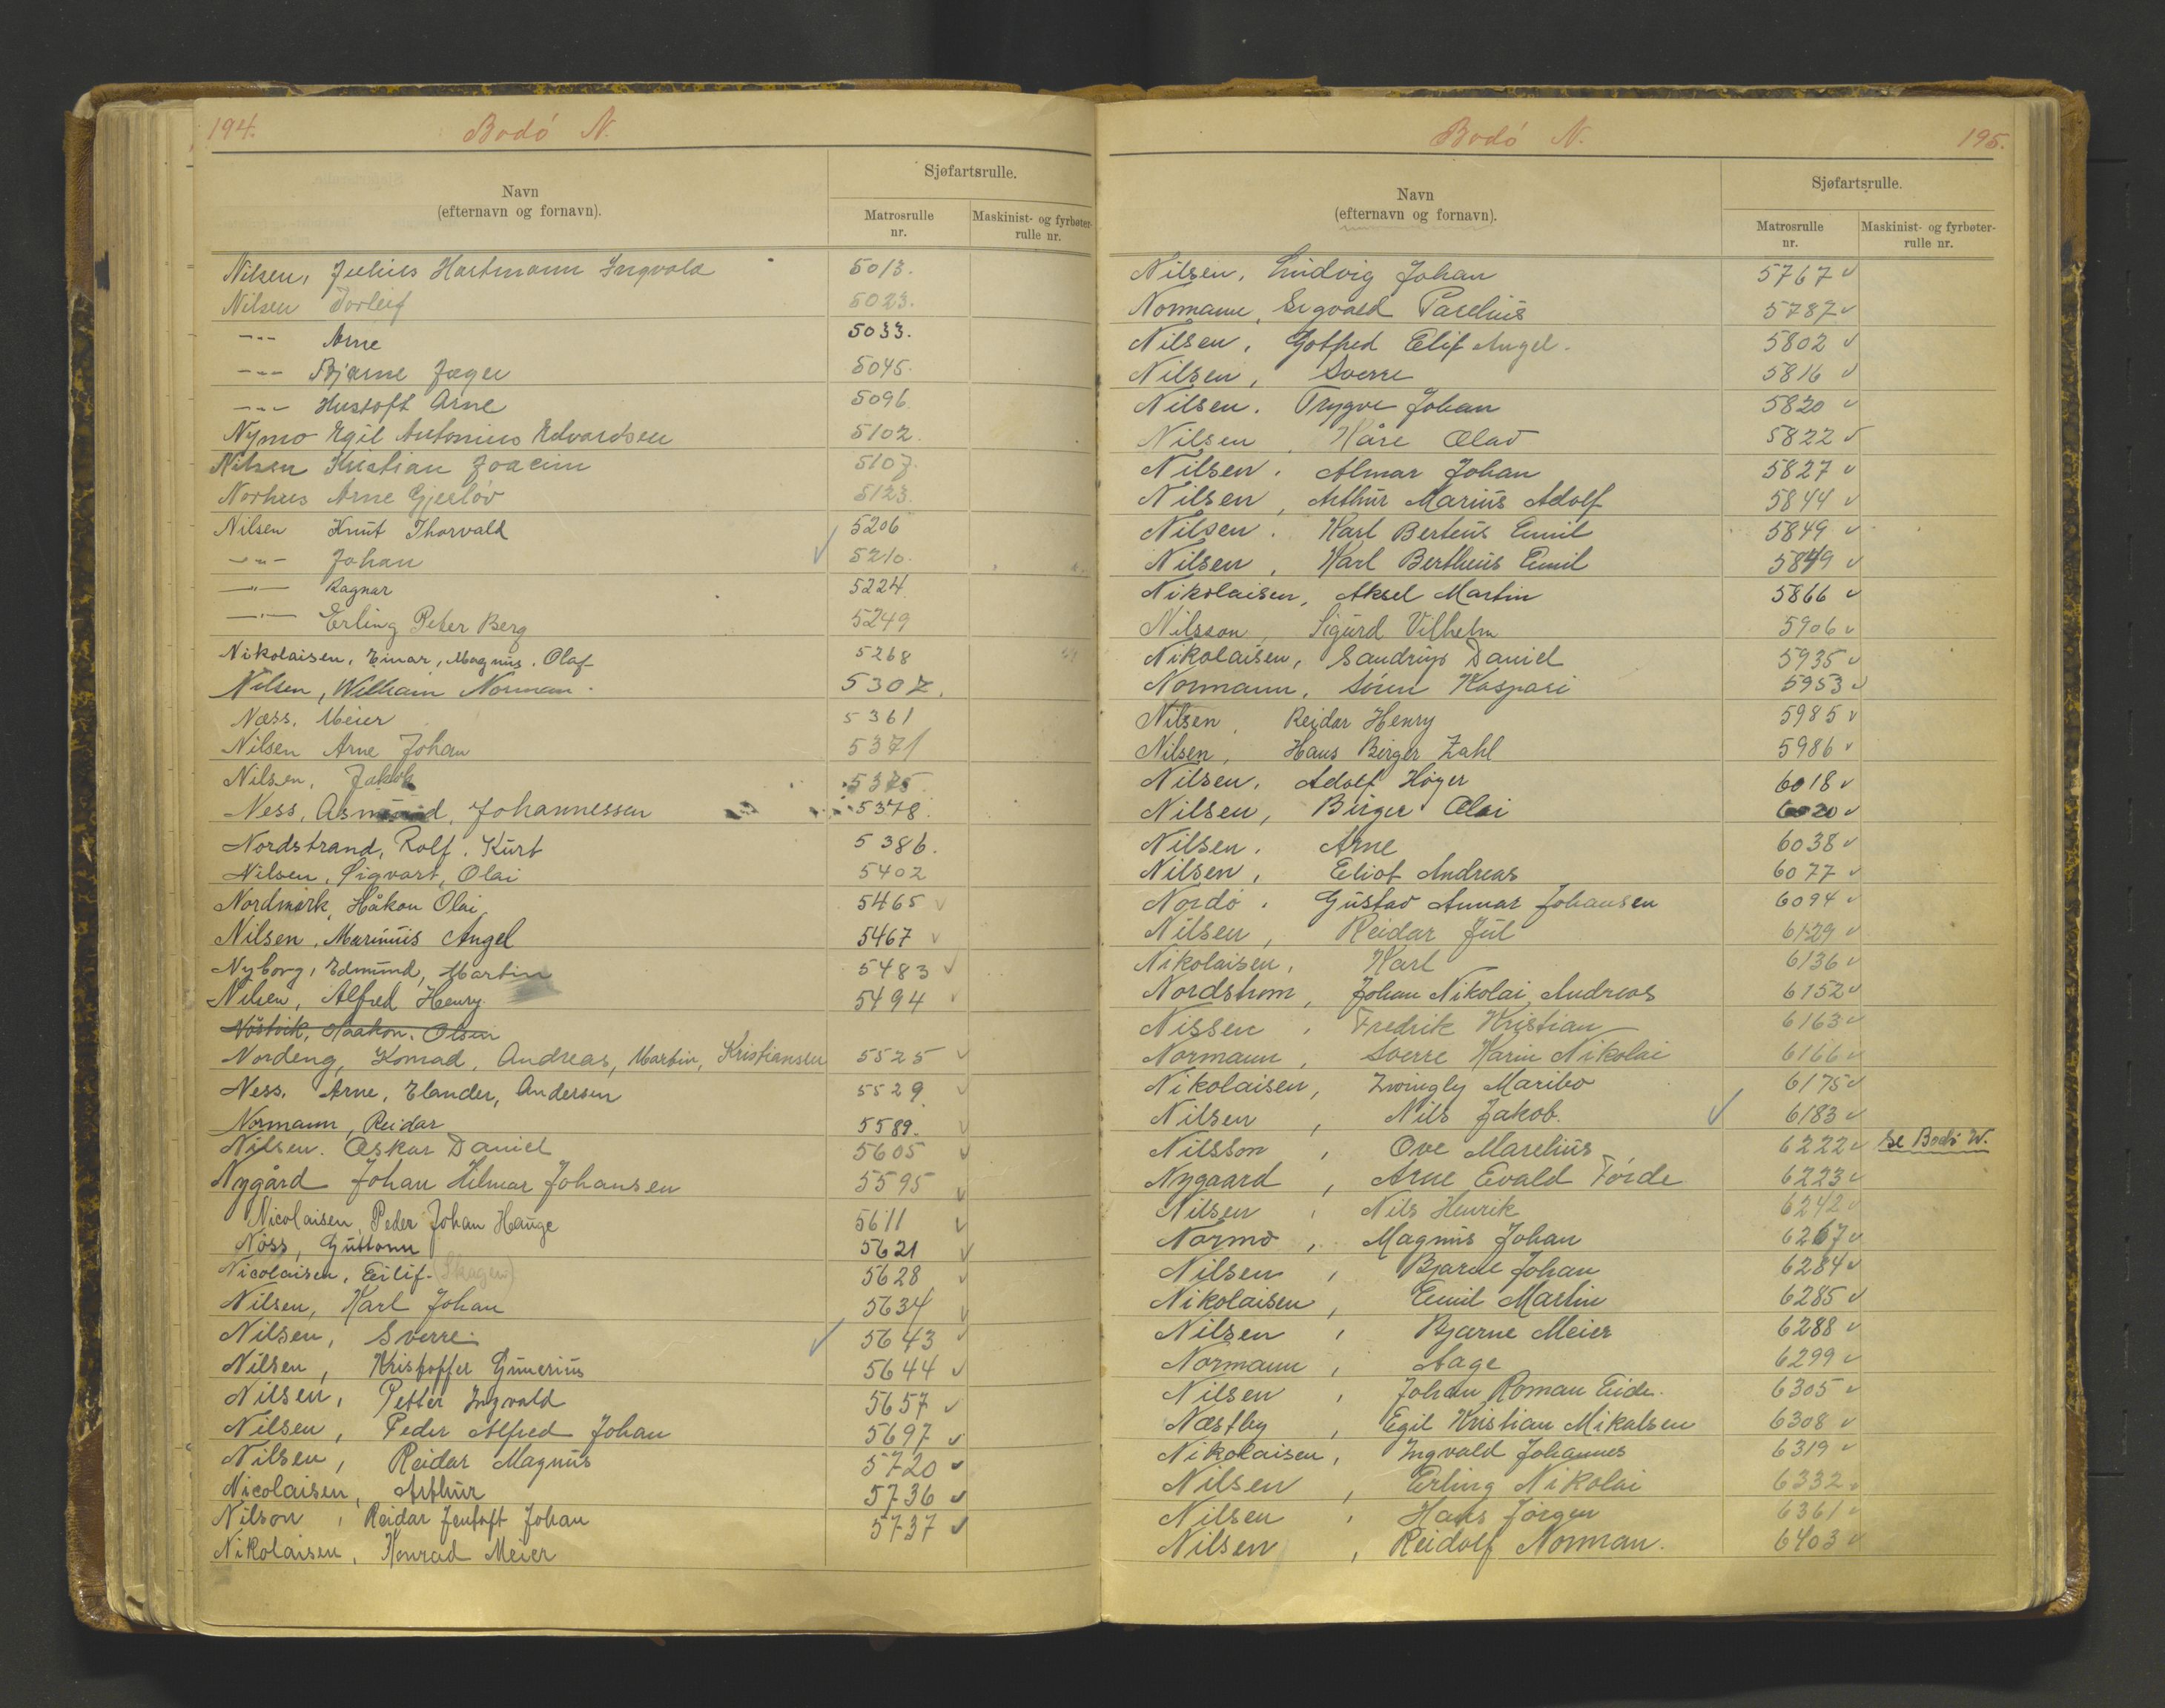 194.
Bodó N.
Navn
(efternavn og fornavn).
Sjøfartsrulle.
Matrosrulle
nr.
Maskinist- og fyrbøter-
rulle nr.
Nilsen, Julius Hartmann Ingvald 5013.
Nilsen Torleif 5023.
-"- Arne 5033.
-"- Bjarne Jæger 5045.
-"- Hustoft Arne 5096.
Nymo Egil Antonius Edvardsen 5102.
Nilsen Kristian Joacim 5107.
Norhus Arne Gjerlöv 5123.
Nilsen Knut Thorvald 5206
-"- Johan ✓ 5210.
-"- Ragnar 5224.
-"- Erling Peter Berg 5249
Nikolaisen, Einar, Magnus. Olaf 5268
Nilsen, William Norman. 5307.
Næss, Meier 5361
Nilsen Arne Johan 5371
Nilsen, Jakob 5375.
Ness, Asmund, Johannessen 5378.
Nordstrand, Rolf. Kurt 5386.
Nilsen, Sigvart, Olai 5402
Nordmark, Håkon Olai 5465 ✓
Nilsen, Marinius Angel 5467 ✓
Nyborg, Edmund, Martin 5483 ✓
Nilsen, Alfred Henry 5494 ✓
Nöstvik, Haakon. Olsen
Nordeng, Konrad, Andreas, Martin, Kristiansen 5525 ✓
Ness. Arne, Elander, Andersen 5529 ✓
Normann, Reidar 5589. ✓
Nilsen. Oskar Daniel 5605 ✓
Nygård Johan Hilmar Johansen 5595 ✓
Nicolaisen, Peder Johan Hauge 5611 ✓
Nöss, Guttorm 5621 ✓
Nicolaisen, Eilif. (Skagen) 5628 ✓
Nilsen, Karl Johan 5634 ✓
Nilsen, Sverre. ✓ 5643 ✓
Nilsen, Kristoffer Gunerius 5644 ✓
Nilsen, Petter Ingvald 5657 ✓
Nilsen, Peder Alfred Johan 5697 ✓
Nilsen, Reidar Magnus 5720 ✓
Nicolaisen, Arthur 5736 ✓
Nilson, Reidar Jentoft Johan 5737 ✓
Nikolaisen, Konrad Meier
Bodó N.
195.
Navn
(efternavn og fornavn).
Sjøfartsrulle.
Matrosrulle
nr.
Maskinist- og fyrbøter-
rulle nr.
Nilsen, Ludvig Johan 5767 ✓
Normann, Sigvald Parelius 5787 ✓
Nilsen, Gotfred Elif Angel. 5802 ✓
Nilsen, Sverre 5816 ✓
Nilsen. Trygve Johan 5820 ✓
Nilsen, Kåre Olav 5822 ✓
Nilsen. Almar Johan 5827 ✓
Nilsen, Arthur Marius Adolf 5844 ✓
Nilsen. Karl Berteus Emil 5849 ✓
Nilsen, Karl Bertheus Emil 5849 ✓
Nikolaisen, Aksel Martin 5866 ✓
Nilsson, Sigurd Vilhelm 5906 ✓
Nikolaisen, Daniel 5935 ✓
Normann, Sören Kaspari 5953 ✓
Nilsen, Reidar Henry 5985 ✓
Nilsen, Hans Birger Zahl 5986 ✓
Nilsen, Adolf Höyer 6018 ✓
Nilsen, Birger Olai 6020 ✓
Nilsen. Arne 6038 ✓
Nilsen, Eliot Andreas 6077 ✓
Nordö. Gustav Annar Johansen 6094 ✓
Nilsen, Reidar Jul 6129 ✓
Nikolaisen, Karl 6136 ✓
Nordstrom, Johan Nikolai Andreas 6152 ✓
Nissen, Fredrik Kristian 6163 ✓
Normann, Sverre Karin Nikolai 6166 ✓
Nikolaisen, Zwingly Maribo 6175 ✓
Nilsen, Nils Jakob. ✓ 6183 ✓
Nilsson, Ove Marelius 6222 ✓ Se Bodö W.
Nygaard, Arne Evald Förde 6223 ✓
Nilsen, Nils Henrik 6242 ✓
Normo, Magnus Johan 6267 ✓
Nilsen, Bjarne Johan 6284 ✓
Nikolaisen, Emil Martin 6285 ✓
Nilsen, Bjarne Meier 6288 ✓
Normann, Aage 6299 ✓
Nilsen, Johan Roman Eide. 6305 ✓
Næstby, Egil Kristian Mikalsen 6308 ✓
Nikolaisen, Ingvald Johannes 6319 ✓
Nilsen, Erling Nikolai 6332 ✓
Nilsen, Hans Jörgen 6361 ✓
Nilsen, Reidolf Norman. 6403 ✓